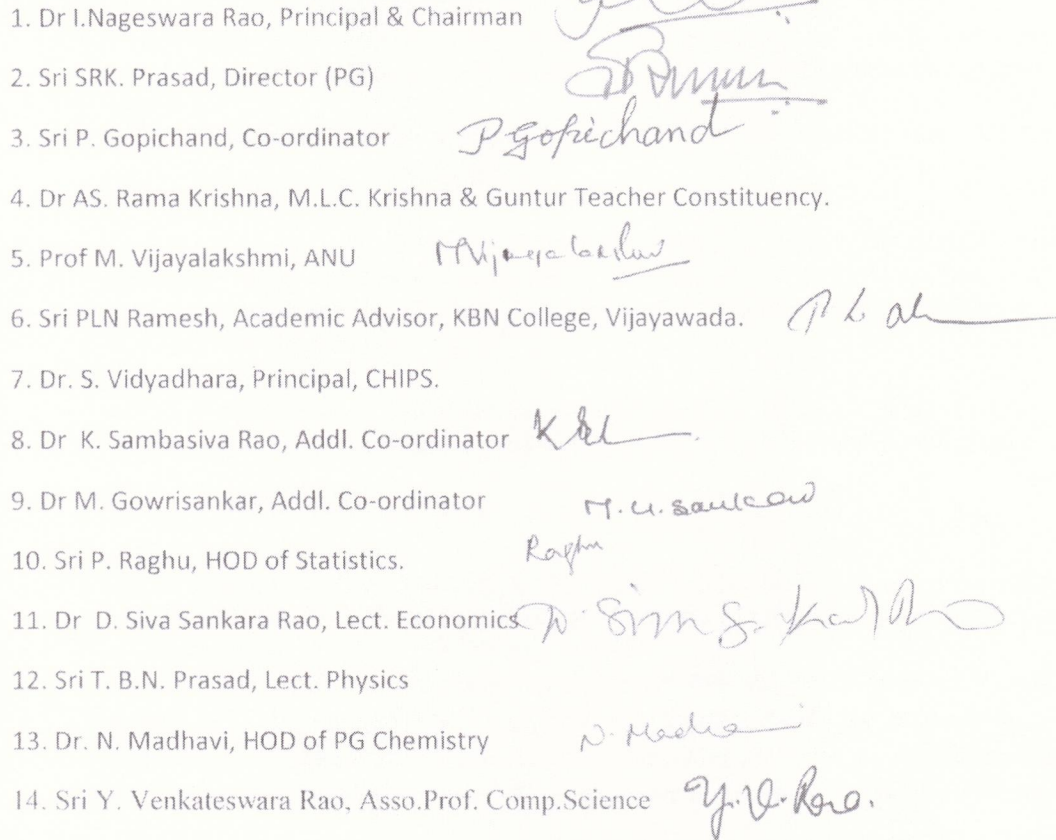 1. Dr I.Nageswara Rao, Principal & Chairman
2. Sri SRK. Prasad, Director (PG)
3. Sri P. Gopichand, Co-ordinator P Gopichand
4. Dr AS. Rama Krishna, M.L.C. Krishna & Guntur Teacher Constituency.
5. Prof M. Vijayalakshmi, ANU MVijayalakshmi
6. Sri PLN Ramesh, Academic Advisor, KBN College, Vijayawada.
7. Dr. S. Vidyadhara, Principal, CHIPS.
8. Dr K. Sambasiva Rao, Addl. Co-ordinator
9. Dr M. Gowrisankar, Addl. Co-ordinator M.G.Sankar
10. Sri P. Raghu, HOD of Statistics. Raghu
11. Dr D. Siva Sankara Rao, Lect. Economics
12. Sri T. B.N. Prasad, Lect. Physics
13. Dr. N. Madhavi, HOD of PG Chemistry N. Madhavi
14. Sri Y. Venkateswara Rao, Asso.Prof. Comp.Science Y.V.Rao.